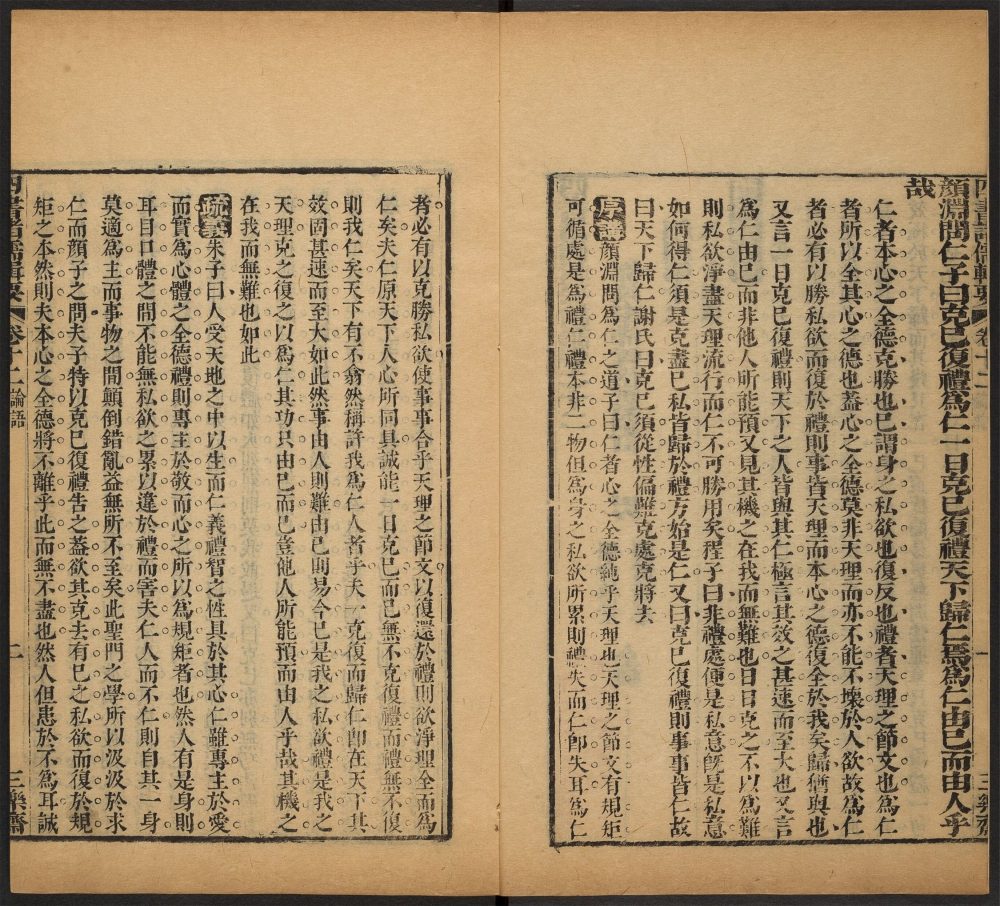 顏淵問仁子曰克己復禮為仁一日克己復禮天下歸仁焉為仁由己而由人乎
哉
仁者本心之全德克勝也己謂身之私欲也復反也禮者天理之節文也為仁
者所以全其心之德也蓋心之全德莫非天理而亦不能不壞於人欲故為仁
者必有以勝私欲而復於禮則事皆天理而本心之德復全於我矣歸猶與也
又言一日克己復禮則天下之人皆與其仁極言其效之甚速而至大也又言
為仁由己而非他人所能預又見其機之在我而無難也日日克之不以為難
則私欲淨盡天理流行而仁不可勝用矣程子曰非禮處便是私意旣是私意
如何得仁須是克盡己私皆歸於禮方始是仁又曰克己復禮則事事皆仁故
曰天下歸仁謝氏曰克己須從性偏難克處克將去
顏淵問為仁之道子曰仁者心之全德純乎天理也天理之節文有規矩
可循處是為禮仁禮本非二物但為身之私欲所累則禮失而仁卽失耳為仁
者必有以克勝私欲使事事合乎天理之節文以復還於禮則欲淨理全而為
仁矣夫仁原天下人心所同具誠能一日克己而己無不克復禮而禮無不復
則我仁矣天下有不翕然稱許我為仁人者乎夫一克復而歸仁卽在天下其
效固甚速而至大如此然事由人則難由己則易今己是我之私欲禮是我之
天理克之復之以為仁其功只由己而已豈他人所能預而由人乎哉其機之
在我而無難也如此
朱子曰人受天地之中以生而仁義禮智之性具於其心仁雖專主於愛
而實為心體之全德禮則專主於敬而心之所以為規矩者也然人有是身則
耳目口體之間不能無私欲之累以違於禮而害夫仁人而不仁則自其一身
莫適為主而事物之間顛倒錯亂益無所不至矣此聖門之學所以汲汲於求
仁而顏子之問夫子特以克己復禮告之蓋欲其克去有己之私欲而復於規
矩之本然則夫本心之全德將不離乎此而無不盡也然人但患於不為耳誠
卷十二 論語
二
三樂齋